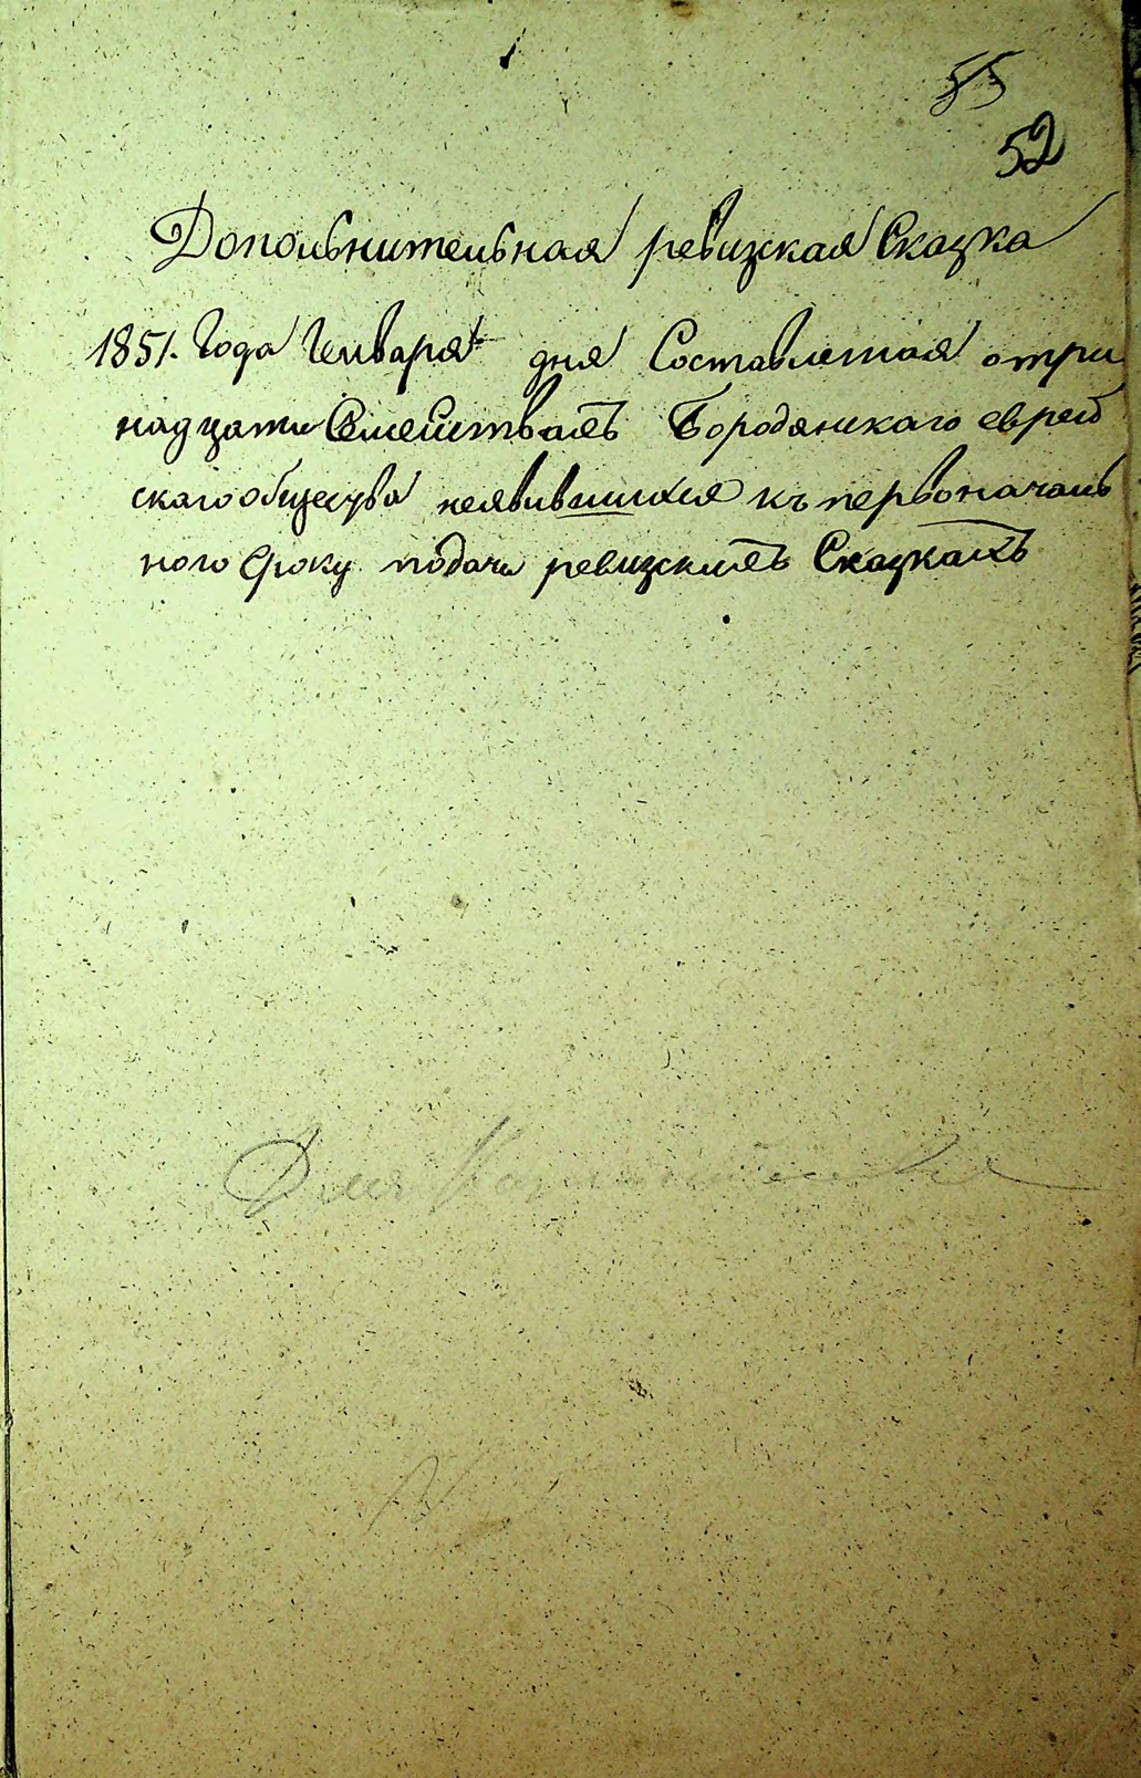 55
52
Дополнительная ревизская Сказка
1851. Года Генваря дня Составленная отри
надцати Семействахъ Бородянскаго еврей
скаго общества неявившихся къ первоначаль
ного Сроку подачи ревизскихъ Сказкахъ
Для